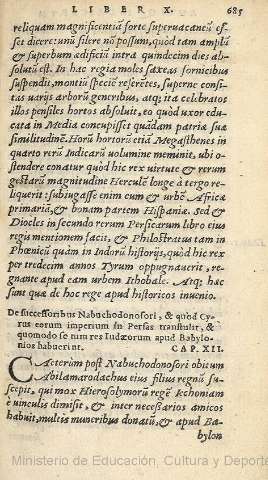 LIBER X. 685
reliquam magnificentiã forte superuacaneũ es-
set dicere: unũ silere nõ possum, quòd tam amplũ
& superbum ædificiũ intra quindecim dies ab-
solutũ est. In hac regia moles saxeas fornicibus
suspendit, montiũ specię reserẽtes, superne consi-
tas uarijs arborũ generibus, atq; ita celebratos
illos pensiles hortos absoluit, eo quòd uxor edu-
cata in Media concupisset quãdam patriæ suæ
similitudinẽ. Horũ hortorũ etiã Megasthenes in
quarto rerũ Indicarũ uolumine meminit, ubi o-
stendere conatur quòd hic rex uirtute & rerum
gestarũ magnitudine Herculẽ longè à tergo re-
liquerit: subiugasse enim cum & urbẽ Africæ
primariã, & bonam partem Hispaniæ. Sed &
Diocles in secundo rerum Persicarum libro eius
regis mentionem facit, & Philostratus tam in
Phœnicũ quàm in Indorũ historijs, quòd hic rex
per tredecim annos Tyrum oppugnauerit, re-
gnante apud eam urbem Ithobale. Atq; hæc
sunt quæ de hoc rege apud historicos inuenio.
De successoribus Nabuchodonosori, & quòd Cy-
rus eorum imperium in Persas transtulit, &
quomodo se tum res Iudæorum apud Babylo-
nios habuerint. CAP. XII.
CAeterùm post Nabuchodonosori obitum
Abilamarodachus eius filius regnũ su-
scepit, qui mox Hierosolymorũ regẽ Iechoniam
è uinculis dimisit, & inter necessarios amicos
habuit, multis muneribus donatũ, & apud Ba-
bylon
Ministerio de Educación, Cultura y Deporte